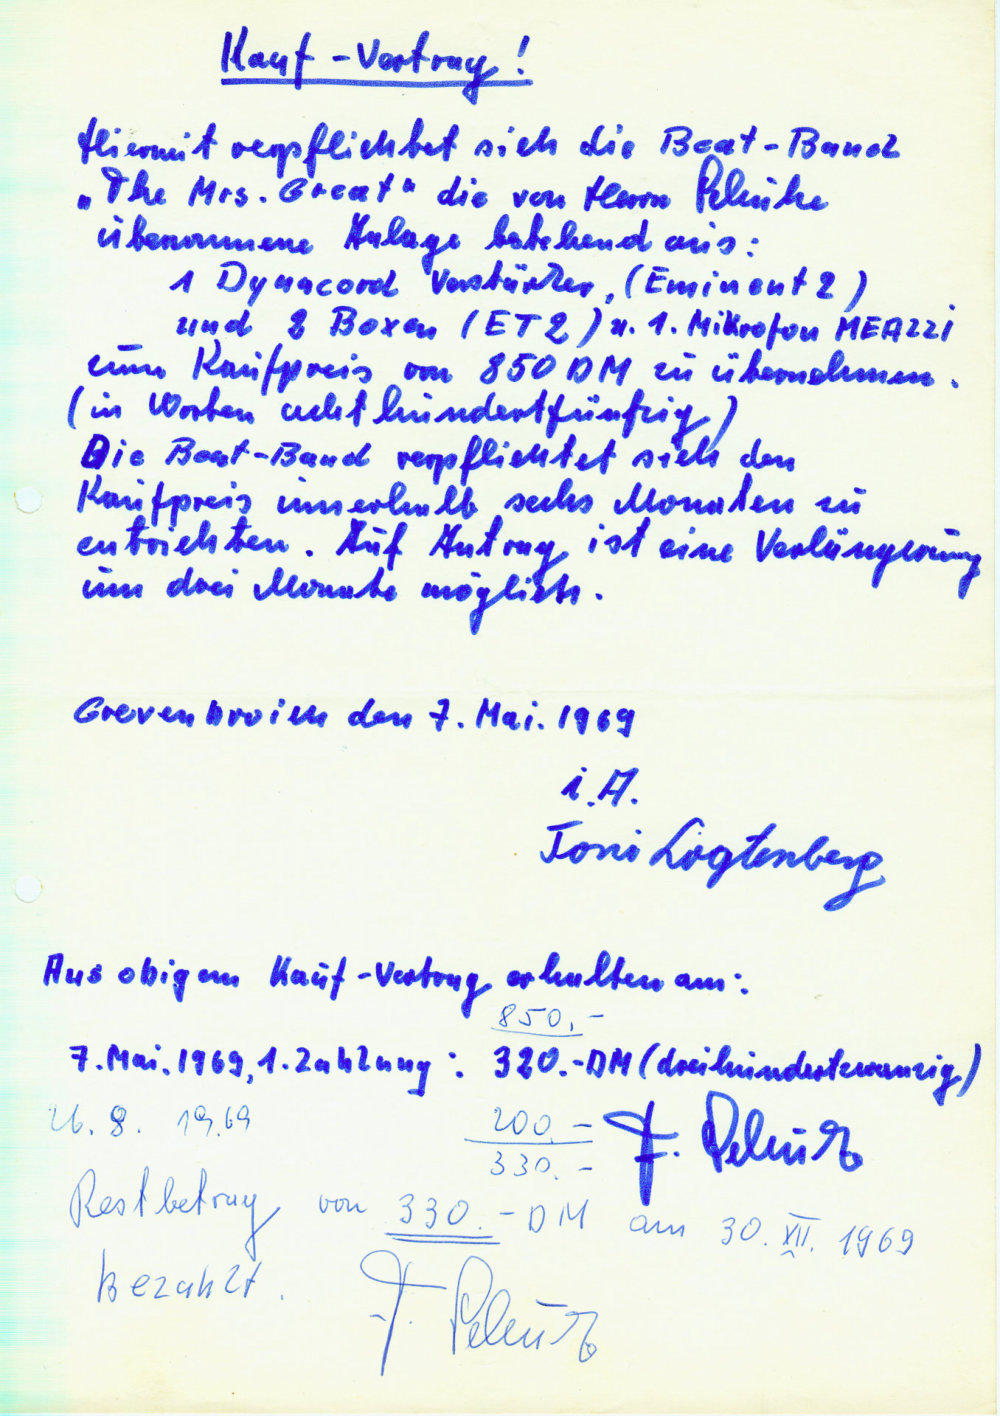 Kauf-Vertrag!
Hiermit verpflichtet sich die Beat-Band
„The Mrs. Great" die von Herrn
übernommene Anlage bestehend aus:
1 Dynacord Verstärker, (Eminent 2)
und 2 Boxen (ET2) u. 1. Mikrofon MEAZZI
zum Kaufpreis von 850 DM zu übernehmen.
(in Worten achthundertfünfzig)
Die Beat-Band verpflichtet sich den
Kaufpreis innerhalb sechs Monaten zu
entrichten. Auf Antrag ist eine Verlängerung
um drei Monate möglich.
Grevenbroich den 7. Mai. 1969
i.A.
Toni Logtenberg
Aus obigem Kauf-Vertrag erhalten am:
850,-
7. Mai. 1969, 1. Zahlung: 320.-DM (dreihundertzwanzig)
26. 8. 19.69 200.-
330.- F.
Restbetrag von 330.- DM am 30. XII. 1969
bezahlt.
F.